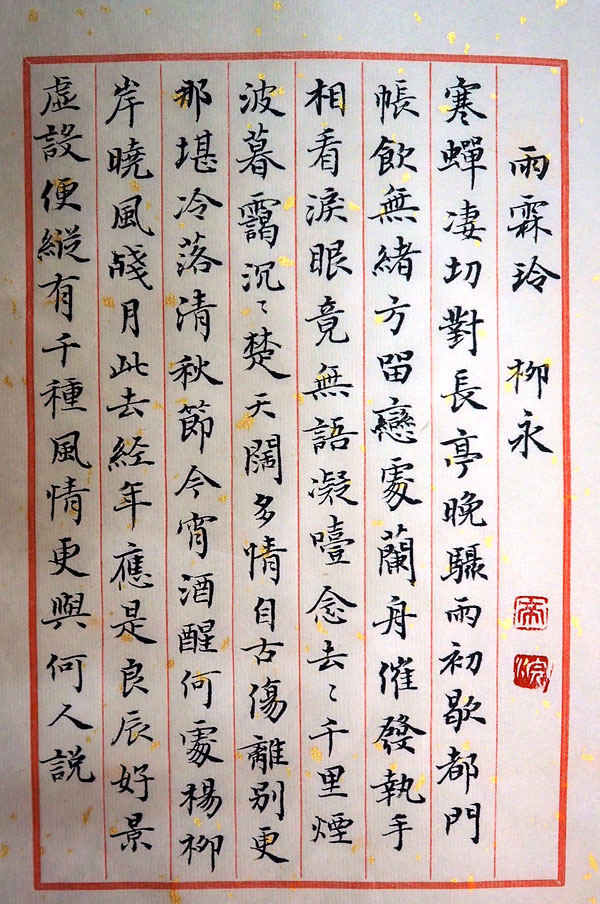 雨霖玲　柳永
寒蟬凄切對長亭晚驟雨初歇都門
帳飲無緒方留戀處蘭舟催發執手
相看淚眼竟無語凝噎念去〻千里煙
波暮靄沉〻楚天闊多情自古傷離別更
那堪冷落清秋節今宵酒醒何處楊柳
岸曉風殘月此去経年應是良辰好景
虛設便縱有千種風情更與何人説